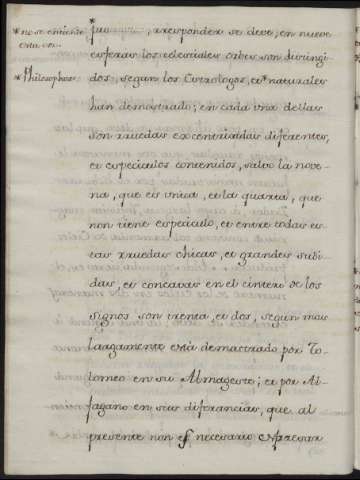 * no se entiende
esta voz.
* Philosophos
* pro , rresponder se deve, en nueve
esferas los celestiales orbes son distingi-
dos, segun los Curologos, et* naturales
han demostrado; en cada una dellas
son rruedas excontradas diferentes,
et espeçiculos contenidos, salvo la nove-
na, que es unica, et la quarta, que
non tiene espeçiculo, et entre todas es-
tas rruedas chicas, et grandes subi-
das, et concavas en el cintero de los
signos son trenta, et dos, segun mas
largamente está demostrado por To-
lomeo en su Almagesto; et por Al-
fagano en sus diferancias, que al
presente non es necesario expresar